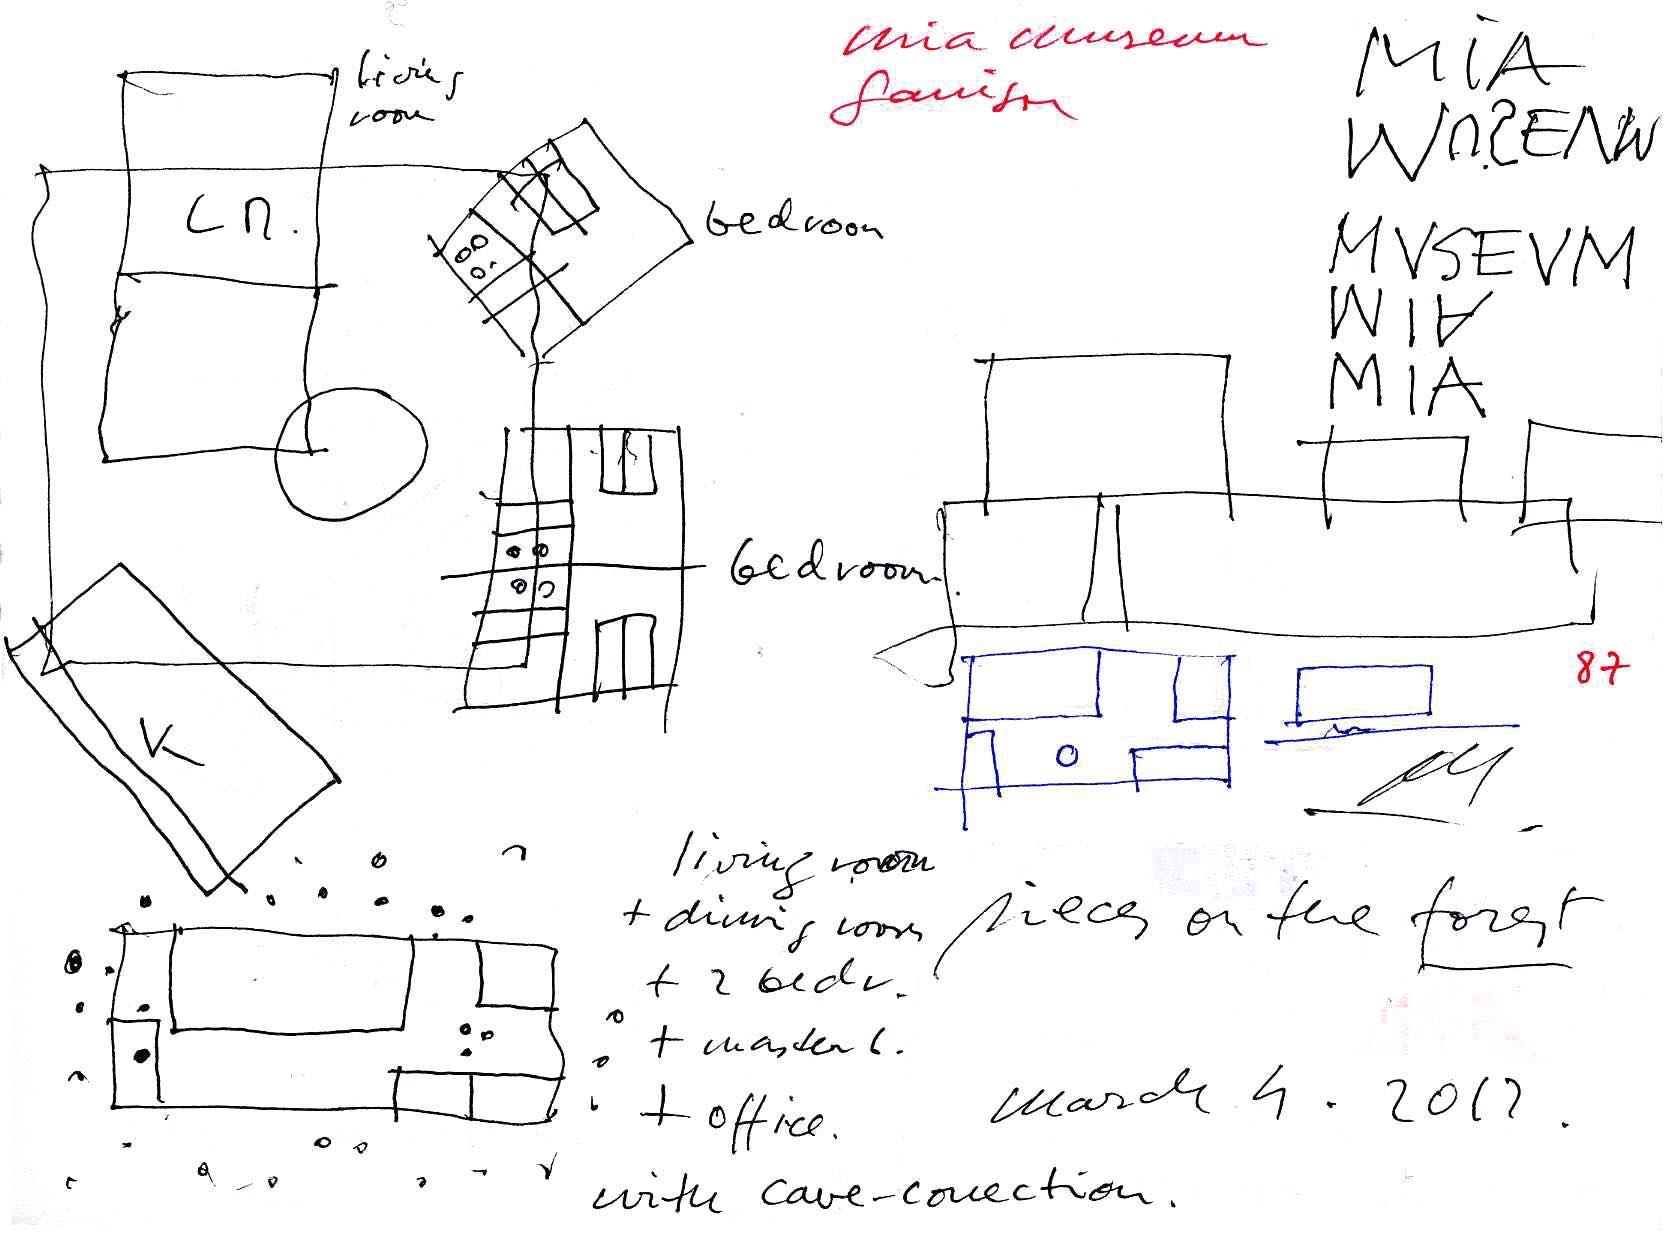 living
room
mia museum
MIA
MVSEVM
MIA
MIA
bedroom
bedroom
K
87
living room
+ dining room
+ 2 bedr.
+ master b.
+ office.
with cave-conection.
pieces on the forest
march 4. 2012.